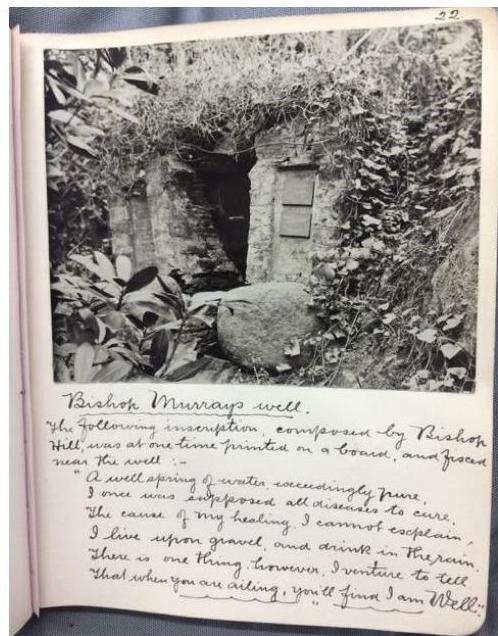 22
Bishop Murrays well.
The following inscription, composed by Bishop
Hill, was at one time printed on a board, and fixed
near the well :-
"A well spring of water, exceedingly pure,
I once was supposed all diseases to cure,
The cause of my healing, I cannot explain,
I live upon gravel, and drink in the rain.
There is one thing, however, I venture to tell
That when you are ailing, you'll find I am Well".